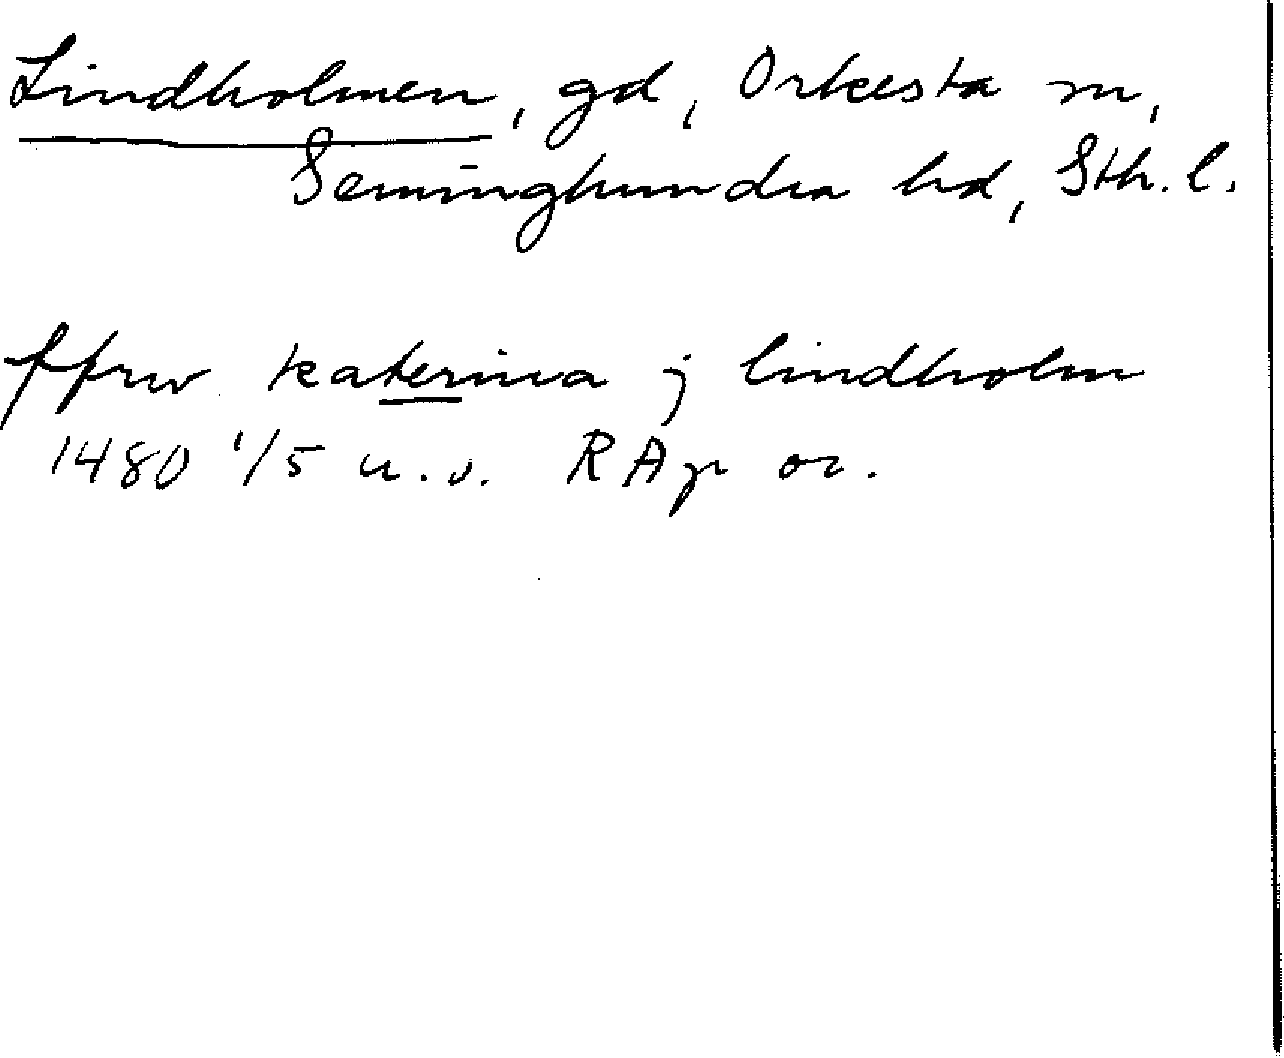 Lindholmen, gd, Orkesta sn,
Seminghundra hd, Sth. l.
ffrw katerina j lindholm
1480 1/5 u. o. RAp or.